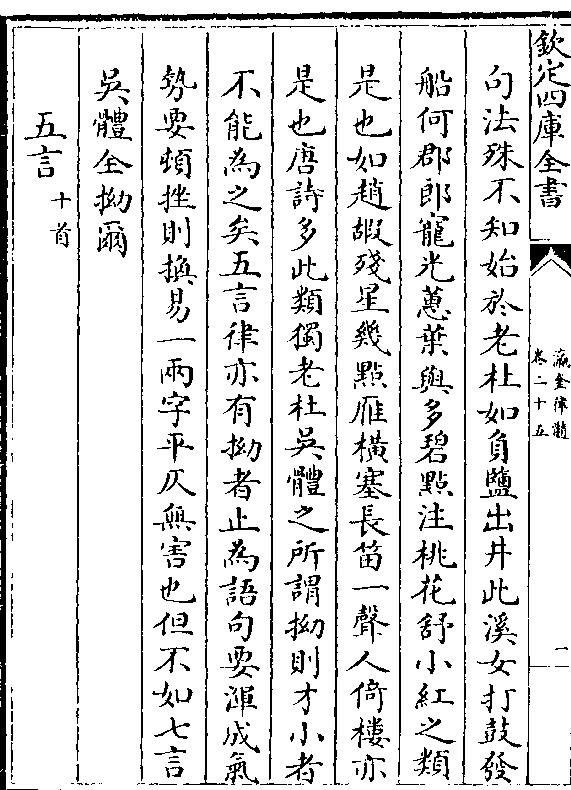 欽定四庫全書
瀛奎律髓
卷二十五
一
句法殊不知始於老杜如負鹽出井此溪女打鼓發
船何郡郎寵光蕙葉與多碧點注桃花舒小紅之類
是也如趙嘏殘星幾點雁橫塞長笛一聲人倚樓亦
是也唐詩多此類獨老杜吳體之所謂拗則才小者
不能為之矣五言律亦有拗者止為語句要渾成氣
勢要頓挫則換易一兩字平仄無害也但不如七言
吳體全拗爾
五言十首